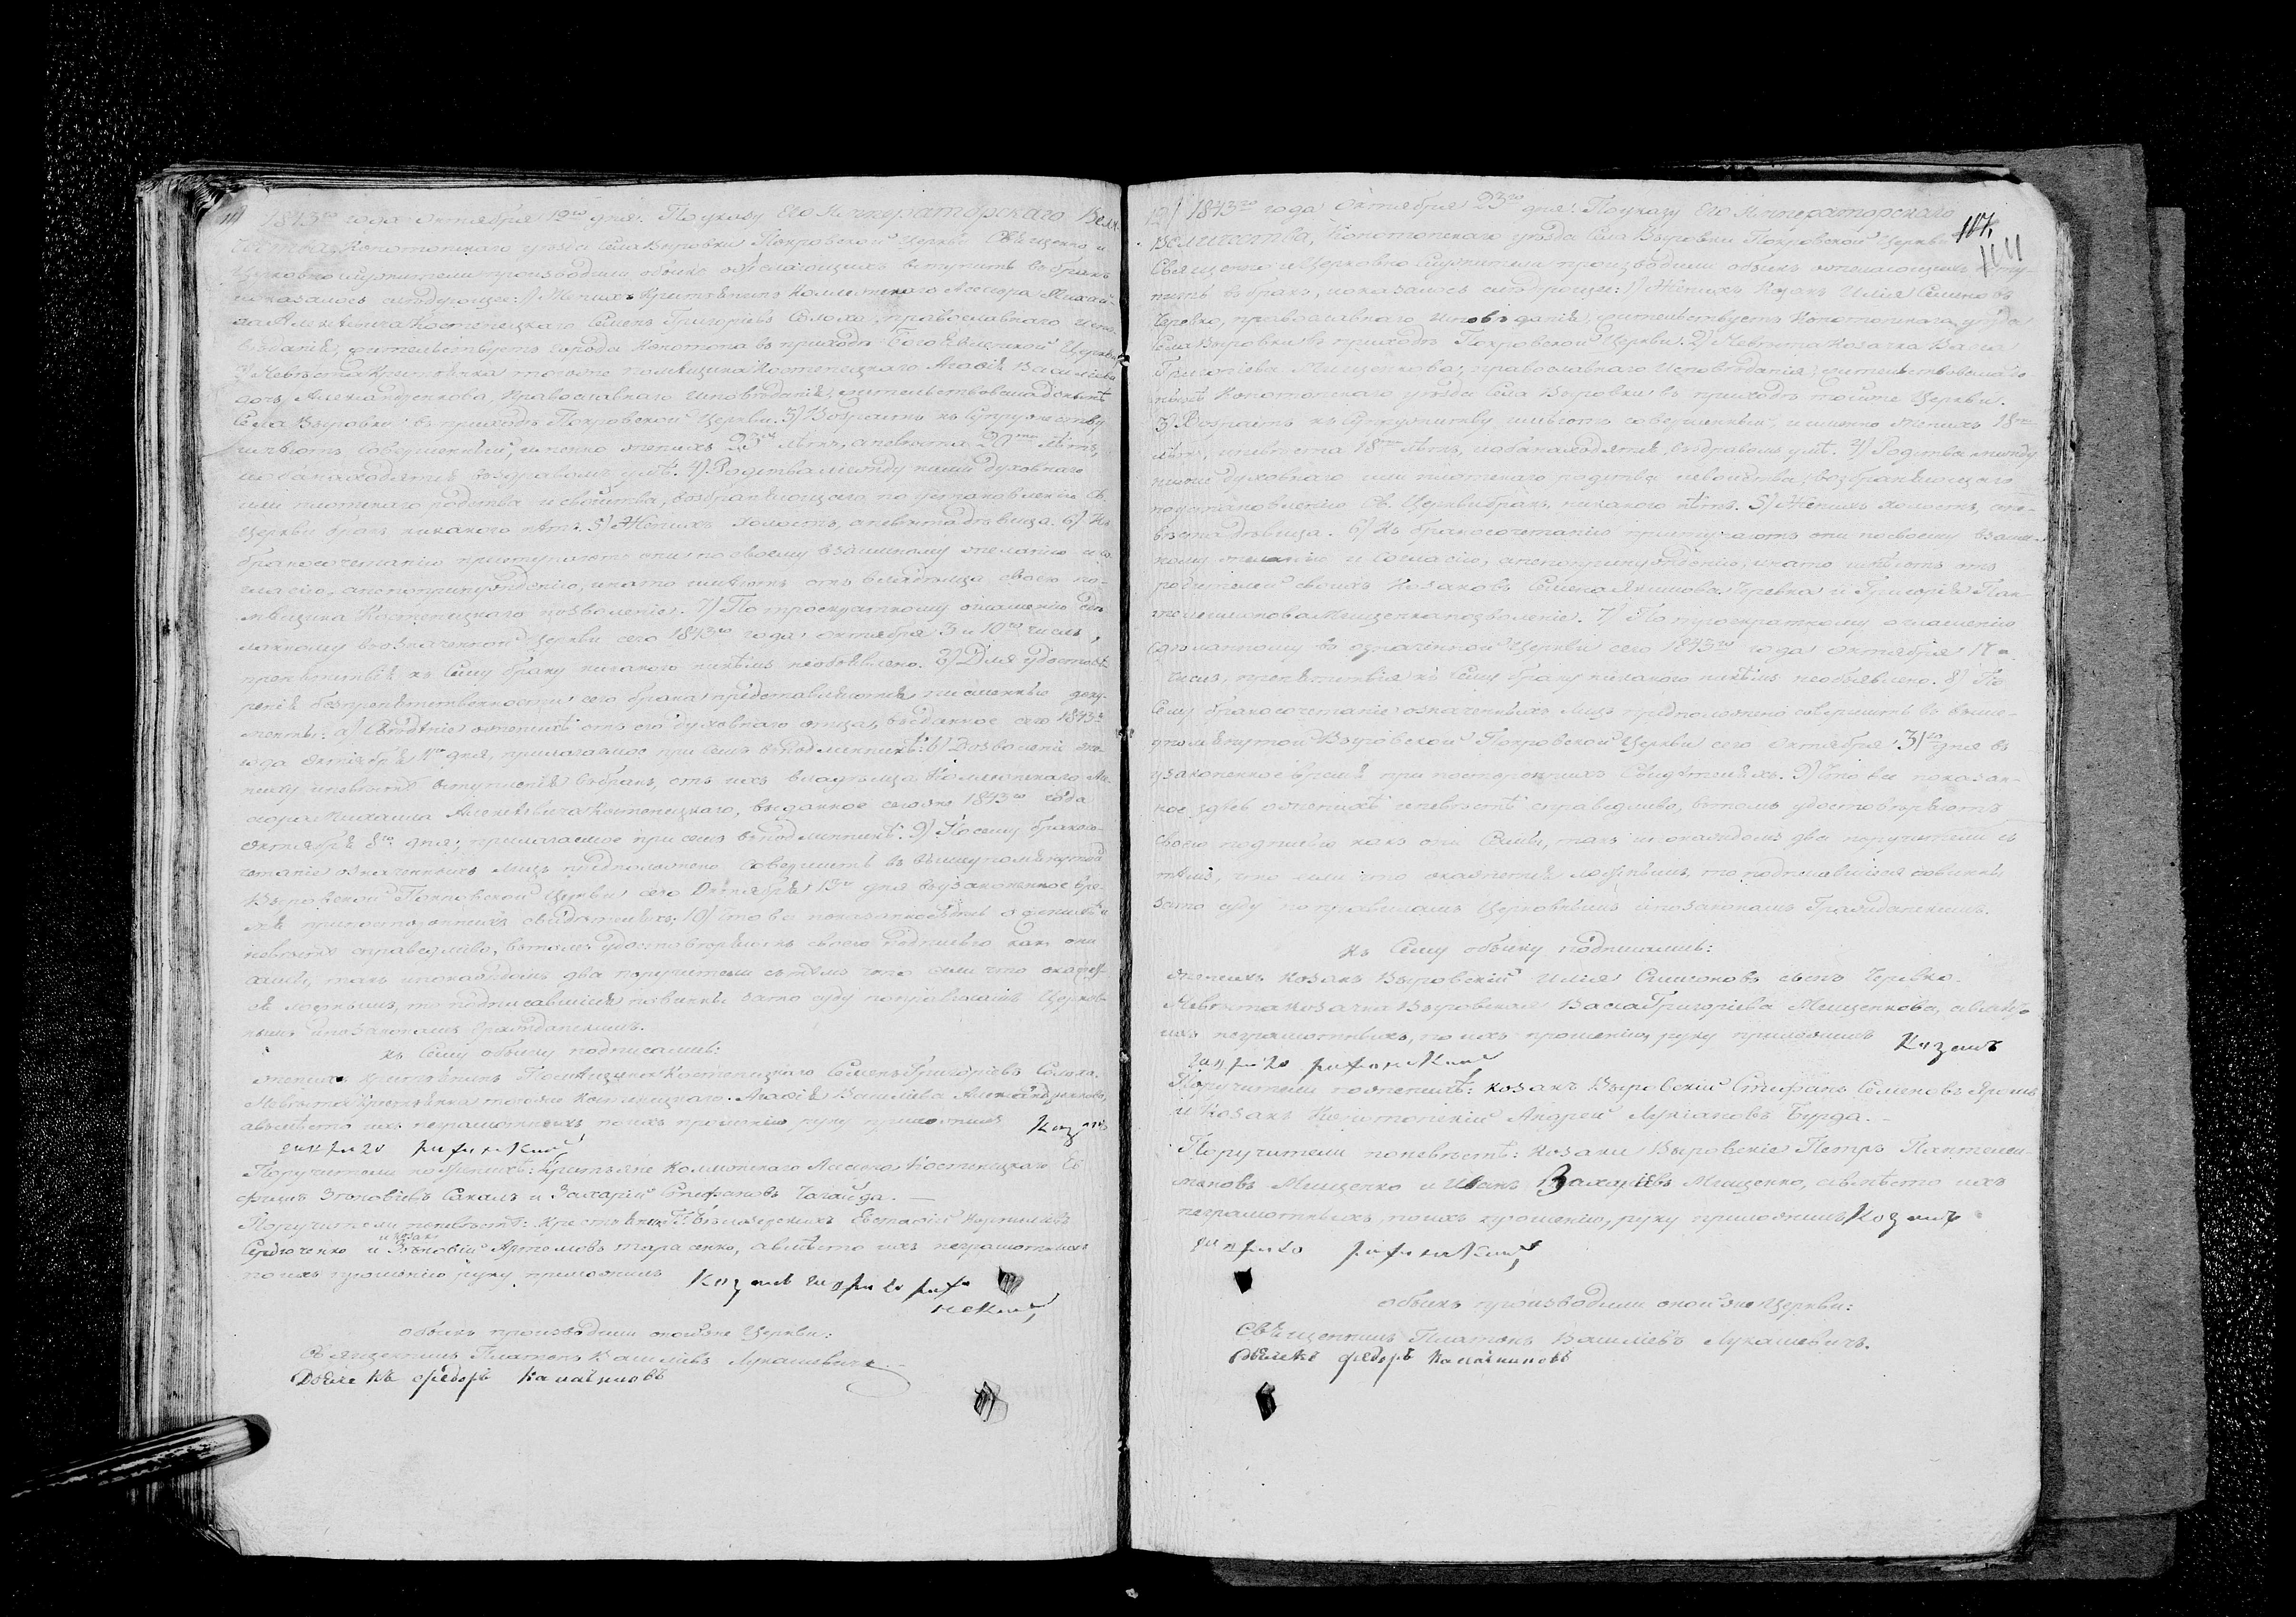 11) 1843го года Октября 12го дня. По указу Его Императорскаго Вели-
чества, Конотопскаго уезда Села Вировки Покровской Церкви Священно и
Церковно служители производили обыскъ о желающихъ вступить въ бракъ
и оказалось следующее: 1) Женихъ Крестьянинъ Коллежскаго Асесора Михай-
ла Алексеевича Костенецкаго Семенъ Григорьевъ Солоха, православнаго испо-
веданія, жительствуетъ города Конотопа въ приходе Богоявленской Церкви.
2) Невеста Крестьянка тогоже помещика Костенецкаго Агафія Василіева
дочь Александренкова, Православнаго исповеданія, жительствовала доныне
Села Вировки въ приходе Покровской Церкви. 3) Возрастъ къ Супружеству
имеютъ совершенный, именно женихъ 23 летъ, а невеста 20 летъ,
и оба находятся въ здравомъ уме. 4) Родства между ними духовнаго
или плотскаго родства и свойства, возбраняющаго по установленію Св.
Церкви бракъ, никакого нетъ. 5) Женихъ холостъ, а невеста девица. 6) Къ
бракосочетанію приступаютъ они по своему взаимному желанію и со-
гласію, а не по принужденію, и на то имеютъ отъ владельца своего по-
мещика Костенецкаго позволеніе. 7) По троекратному оглашенію зде-
ланному въ означенной Церкви сего 1843го года Октября 3 и 10го числъ,
препятствія къ сему браку никакого никемъ не объявлено. 8) Для удостове-
ренія безпрепятственности сего брака представляются письменные доку-
менты: а) Сведеніе о женихе отъ его духовнаго отца, выданное сего 1843го
года Октября дня, прилагаемое при семъ въ подлиннике: б) Дозволеніе же-
ниху и невесте вступленія въ бракъ, отъ ихъ владельца Коллежскаго Ас-
сесора Михаила Алексеевича Костенецкаго, выданное сегоже 1843го года
Октября 8го дня; прилагаемое при семъ въ подлиннике. 9) По сему бракосо-
четаніе означенныхъ лицъ предположено совершить въ вышеупомянутой
Выровской Покровской Церкви сего Октября 13го дня въ узаконенное вре-
мя при постороннихъ свидетеляхъ; 10) Что все показанное здесь о женихе и
невесте справедливо, въ томъ удостоверяютъ своею подписью какъ они
сами, такъ и по каждомъ два поручителя съ темъ что если что окажет-
ся ложнымъ, то подписавшіеся повинны за то суду по правиламъ Церков-
нымъ и по законамъ Гражданскимъ.
къ Сему обыску подписались:
женихъ крестьянинъ Помещика Костенецкаго Семенъ Григорьевъ Солоха.
Невеста крестьянка тогоже Костенецкаго Агафія Василіева Александренкова,
а вместо ихъ неграмотныхъ по ихъ прошенію руку приложилъ Козакъ
Поручители по женихе: Крестьяне Коллежскаго Асесора Костенецкаго Еф-
фимъ Зеновіевъ Сакалъ и Захарій Стефановъ Чагайда.
Поручители по невесте: Крестьянинъ Евстафій Корниліевъ
Сердюченко и козакъ Зеновій Артемовъ Тарасенко, а вместо ихъ неграмотныхъ
по ихъ прошенію руку приложилъ Козакъ
обыскъ производили оной же Церкви:
Священникъ Платонъ Василіевъ Лукашевичъ.
Дьячекъ Федоръ Калачниковъ
12) 1843го года Октября 23го дня. По указу Его Императорскаго
Величества, Конотопскаго уезда Села Выровки Покровской Церкви
Священно и Церковно Служители производили обыскъ о желающихъ всту-
пить въ бракъ, и оказалось следующее: 1) Женихъ Козакъ Илія Семеновъ
Черевко, православнаго исповеданія, жительствуетъ Конотопскаго уезда
Села Выровки въ приходе Покровской Церкви. 2) Невеста Козачка Васса
Григоріева Мищенкова, православнаго исповеданія, жительствовала до-
ныне Конотопскаго уезда Села Выровки въ приходе тойже Церкви.
3) Возрастъ къ Супружеству имеютъ совершенный, и именно Женихъ 18
летъ, а невеста 18 летъ, и оба находятся въ здравомъ уме. 4) Родства между
ними духовнаго или плотскаго родства и свойства, возбраняющаго
по установленію Св. Церкви бракъ, никакого нетъ. 5) Женихъ холостъ, а не-
веста девица. 6) Къ бракосочетанію приступаютъ они по своему взаим-
ному желанію и согласію, а не по принужденію, и на то имеютъ отъ
родителей своихъ Козаковъ Семена Черевка и Григорія Пан-
телеимонова Мищенка позволеніе. 7) По троекратному оглашенію
зделанному въ означенной Церкви сего 1843го года Октября 17
числъ, препятствія къ сему браку никакого никемъ необъявлено. 8) По
Сему бракосочетаніе означенныхъ лицъ предположено совершить въ выше-
упомянутой Выровской Покровской Церкви сего Октября 31го дня въ
узаконенное время при постороннихъ Свидетеляхъ. 9) Что все показан-
ное здесь о женихе и невесте справедливо, въ томъ удостоверяютъ
своею подписью какъ они Сами, такъ и по каждомъ два поручителя съ
темъ, что если что окажется ложнымъ, то подписавшіеся повинны
за то суду по правиламъ Церковнымъ и по законамъ Гражданскимъ.
къ Сему обыску подписались:
женихъ козакъ Выровскій Илія Симеоновъ сынъ Черевко.
Невеста козачка Выровская Васса Григоріева Мищенкова, а вместо
ихъ неграмотныхъ, по ихъ прошенію, руку приложилъ Козакъ
Поручители по женихе: козакъ Выровскій Стефанъ Семеновъ
и Козакъ Конотопскій Андрей Лукіановъ Бурда.
Поручители по невесте: козаки Выровскіе Петръ Пантелеи-
моновъ Мищенко и Иванъ Захаріевъ Мищенко, а вместо ихъ
неграмотныхъ, по ихъ прошенію, руку приложилъ Козакъ
обыскъ производили оной же Церкви:
Священникъ Платонъ Василіевъ Лукашевичъ.
Дьячекъ Федоръ Калачниковъ